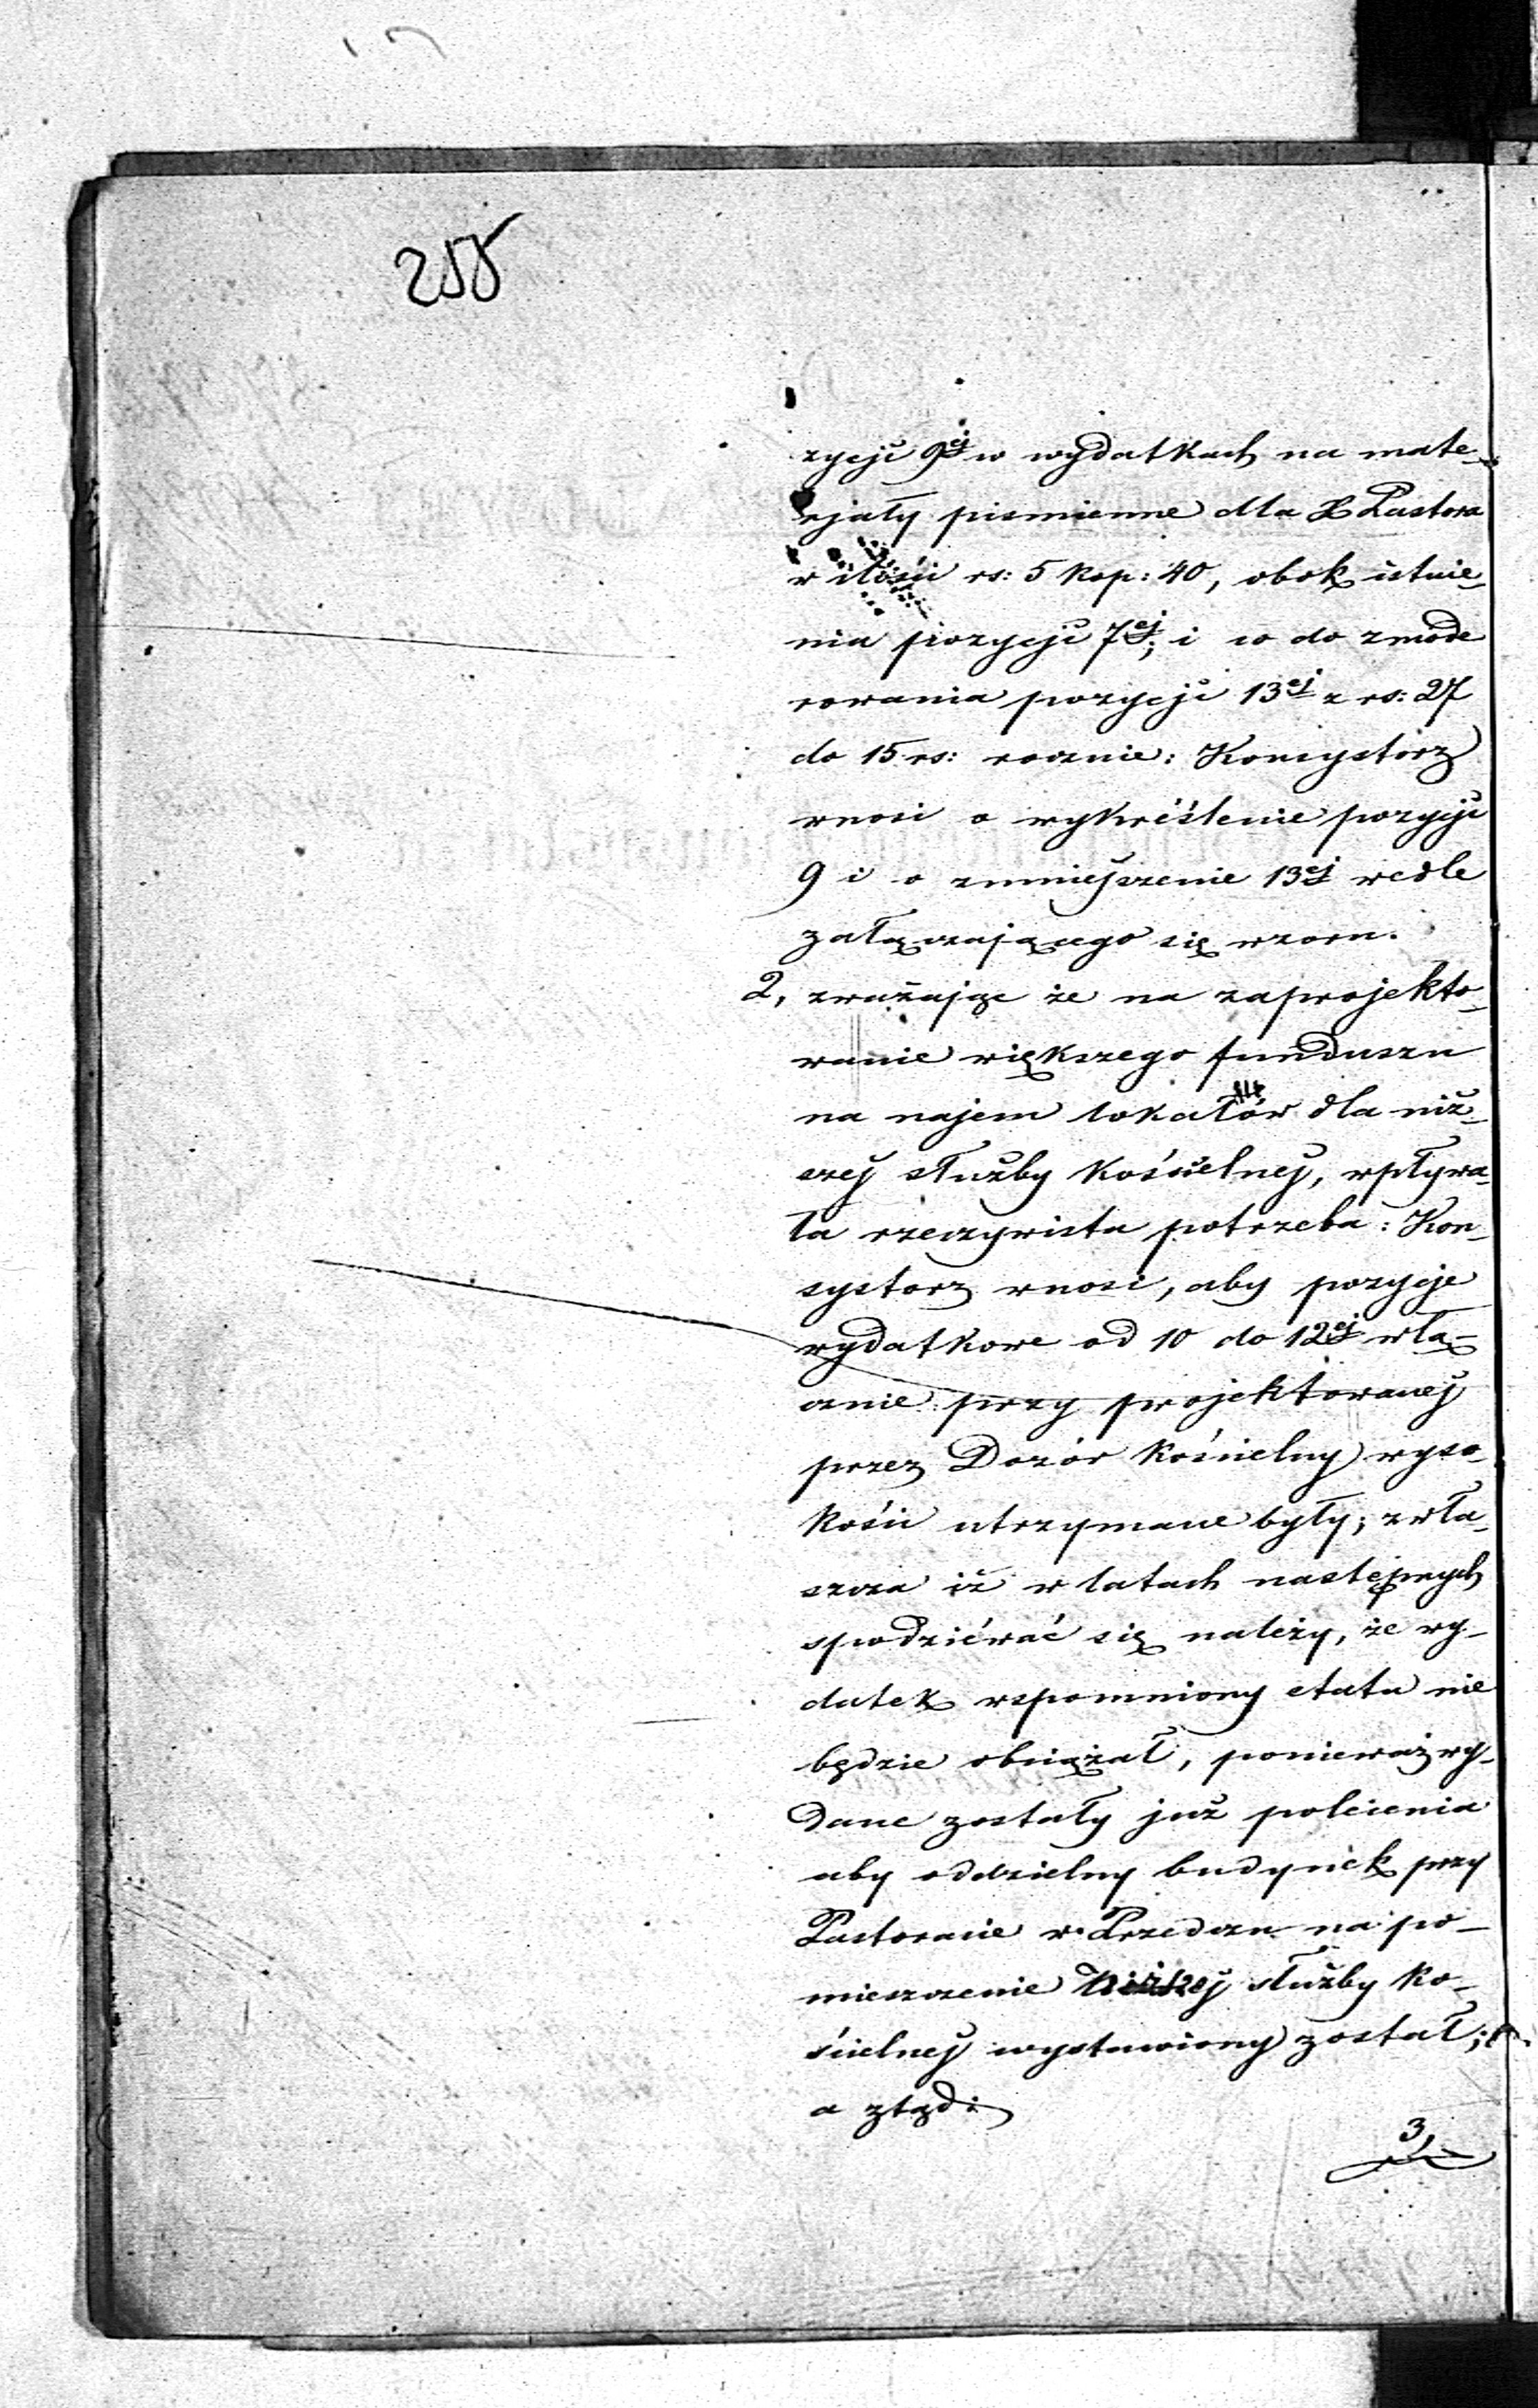 255
zycji 9ej w wydatkach na mate-
rjały piśmienne dla X Pastora
w ilości rs: 5 kop: 40, obok istnie-
nia pozycji 7ej; i co do zmode
rowania pozycji 13ej z rs: 27
do 15 rs: rocznie: Konsystorz
wnosi o wykréślenie pozycji
9 i o zmniejszenie 13ej wedle
załączającego się wzoru.
2, zważając że na zaprojekto-
wanie większego funduszu
na najem lokalów dla niż-
szej służby kościelnej, wpływa-
ła rzeczywista potrzeba: Kon-
systorz wnosi, aby pozycje
wydatkowe od 10 do 12ej włą-
cznie przy projektowanej
przez Dozór kościelny wyso-
kości utrzymane były; zwła-
szcza iż w latach następnych
spodziéwać się należy, że wy-
datek wspomniony etatu nie
będzie obciążał, ponieważ wy-
dane zostały już polecenia
aby oddzielny budynek przy
Pastoracie w Przedczu na po-
mieszczenie niższej służby ko-
ścielnej wystawiony został;
a ztąd:
3,